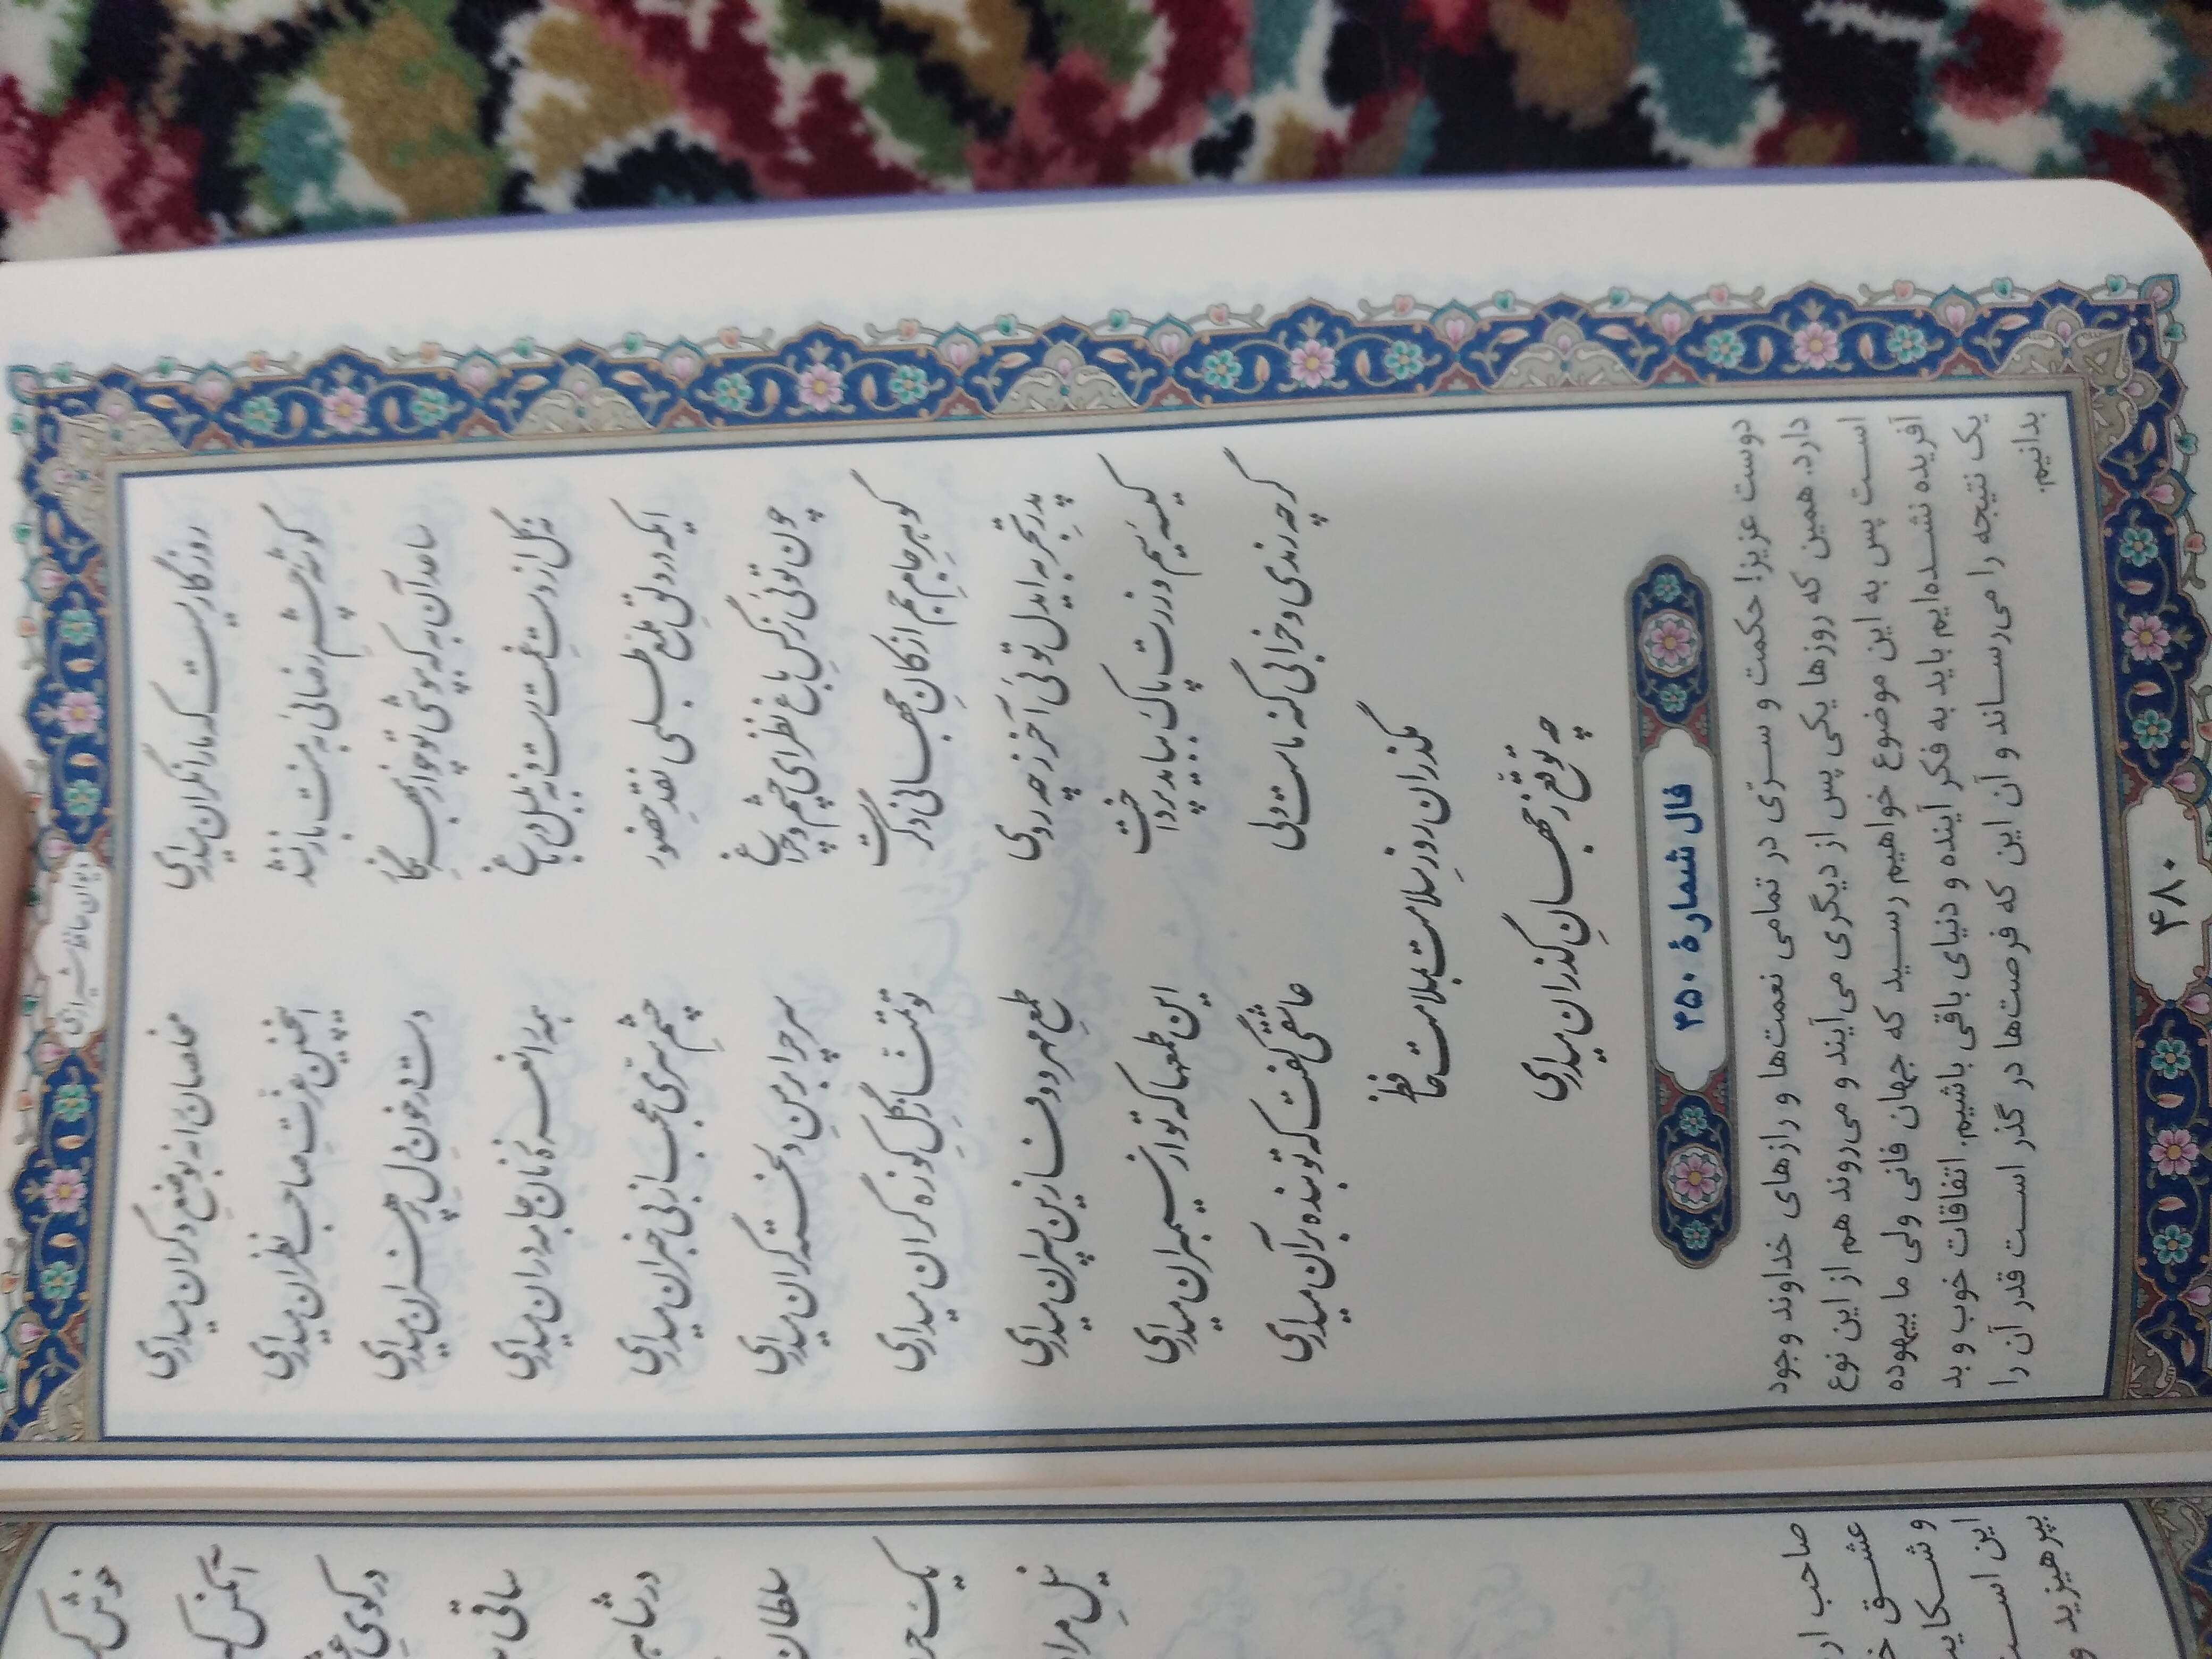 دیوان حافظ شیرازی
روزگاریست که ما را نگران میداری
مخلصان را نه بوضع دگران میداری
گوشه چشم رضائی به منت باز نشد
اینچنین عزت صاحب نظران میداری
ساعد آن به که بپوشی تو چو از بهر نگار
دست در خون دل پر هنران میداری
نه گل از دست غمت رست و نه بلبل در باغ
همه را نعره زنان جامه دران میداری
ایکه در دلق ملمع طلبی نقد حضور
چشم سری عجب از بی خبران میداری
چون توئی نرگس باغ نظر ای چشم و چراغ
سر چرا بر من دلخسته گران میداری
گوهر جام جم از کان جهانی دگرست
تو تمنا ز گل کوزه گران میداری
پدر تجربه ایدل توئی آخر ز چه روی
طمع مهر و وفا زین پسران میداری
کیسه سیم و زرت پاک بباید پرداخت
این طمعها که تو از سیمبران میداری
گرچه رندی و خرابی گنه ماست ولی
عاشقی گفت که تو بنده بر آن میداری
مگذران روز سلامت بملامت حافظ
چه توقع ز جهان گذران میداری
فال شمارهٔ ۴۵۰
دوست عزیز! حکمت و سرّی در تمامی نعمت‌ها و رازهای خداوند وجود
دارد. همین که روزها یکی پس از دیگری می‌آیند و می‌روند هم از این نوع
است پس به این موضوع خواهیم رسید که جهان فانی ولی ما بیهوده
آفریده نشده‌ایم باید به فکر آینده و دنیای باقی باشیم. اتفاقات خوب و بد
یک نتیجه را می‌رساند و آن این که فرصت‌ها در گذر است قدر آن را
بدانیم.
۴۸۰
خوش
آنکس که
در کوی
ساقی
در شاه
سلطان
یک
نیل مراد
صاحب
عشق
و
این است
بپرهیزید و